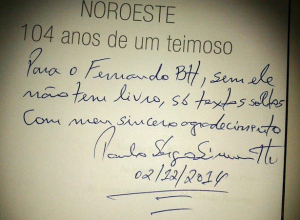 NOROESTE
104 anos de um teimoso
Para o Fernando BH, sem ele
não tem livro, só textos soltos
Com meu sincero agradecimento
Paulo Sérgio
02/12/2014